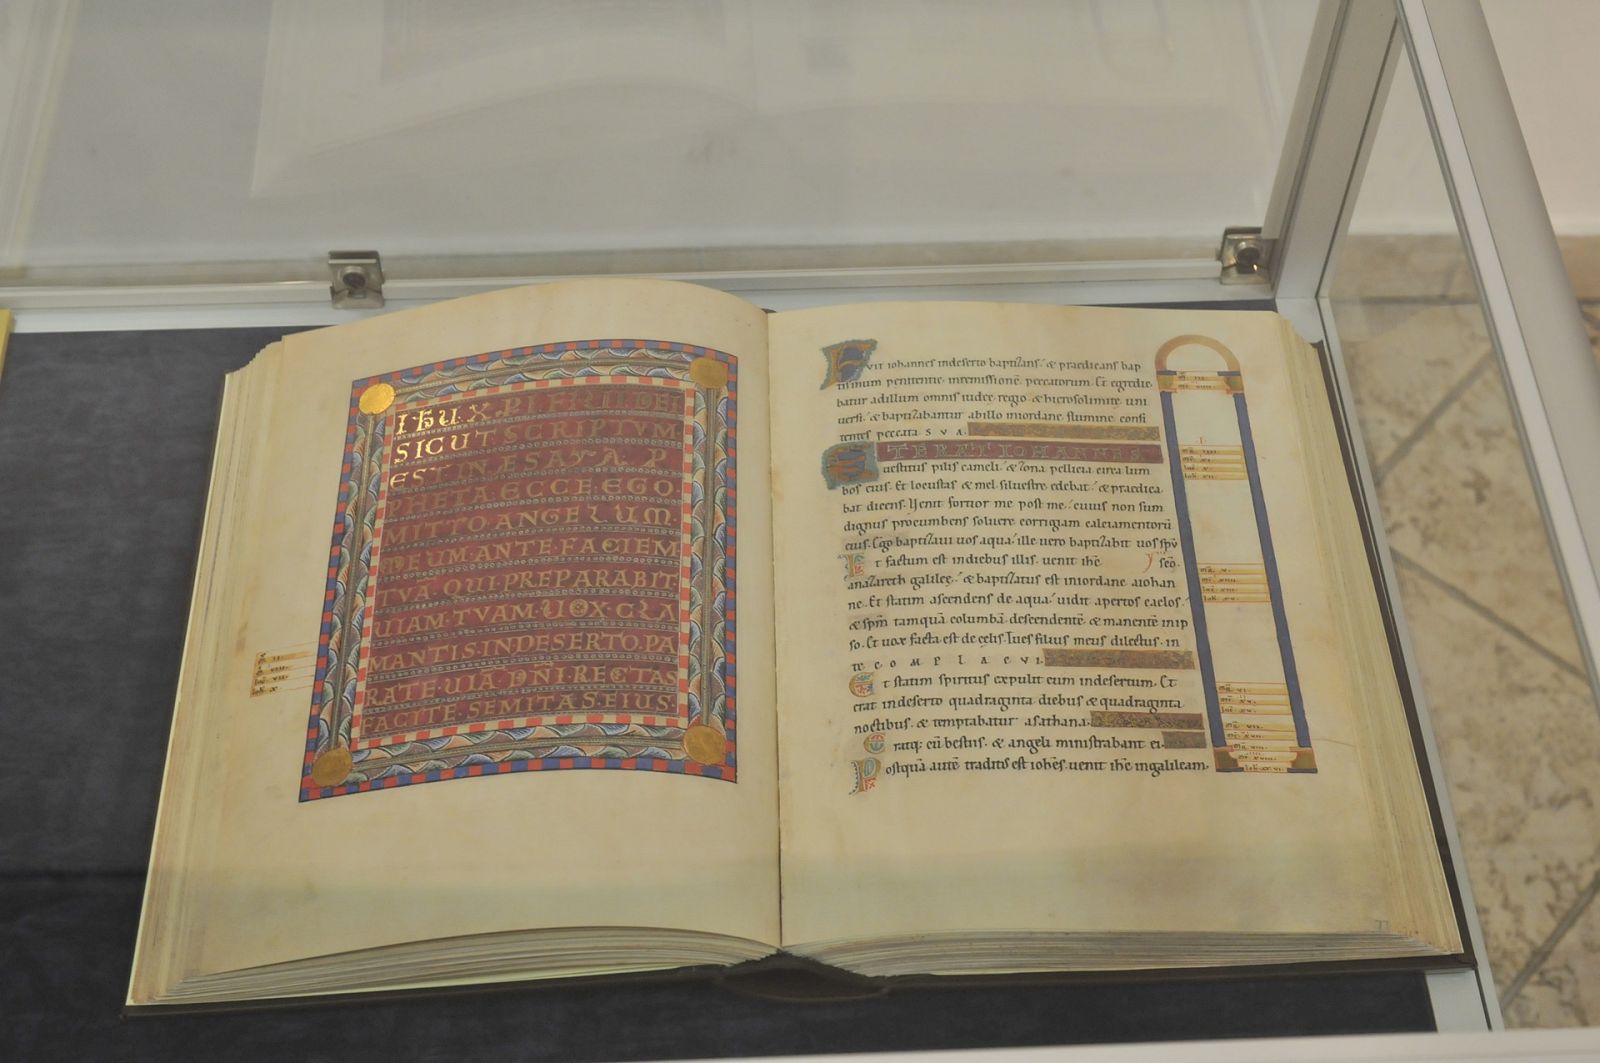 IHU. XPI FILII DEI
SICUT SCRIPTUM
EST IN ESAYA. P
PHETA. ECCE. EGO
MITTO. ANGELUM.
MEUM. ANTE. FACIEM
TVA. QUI. PREPARABIT
UIAM. TVAM. UOX. CLA
MANTIS. IN DESERTO. PA
RATE. UIA. DNI. RECTAS
FACITE. SEMITAS. EIUS.
Fvit iohannes indeserto baptizans. & praedicans bap
tismum penitentie inremissione peccatorum. Et egredie
batur adillum omnis iudee regio. & hierosolimite uni
uersi. & baptizabantur abillo iniordane flumine. confi
tentes peccata SVA.
ETERAT IOHANNES
uestitus pilis cameli. & zona pellicia circa lum
bos eius. Et locustas & mel siluestre edebat. & praedica
bat dicens. Uenit fortior me post me. cuius non sum
dignus procumbens soluere corrigiam calciamentorū
eius. Ego baptizaui uos aqua. ille uero baptizabit uos spū
Et factum est indiebus illis. uenit ihe scō.
anazareth galilee. & baptizatus est iniordane aiohan
ne. Et statim ascendens de aqua. uidit apertos caelos.
& spm tamquā columbā descendentē. & manentē inip
so. Et uox facta est de celis. Tu es filius meus dilectus. in
te COMPLACVI.
Et statim spiritus expulit eum indesertum. Et
erat indeserto quadraginta diebus & quadraginta
noctibus. & temptabatur asathana.
Eratq: cū bestiis. & angeli ministrabant ei.
Postquā autē traditus est iohes. uenit ihe ingalileam.